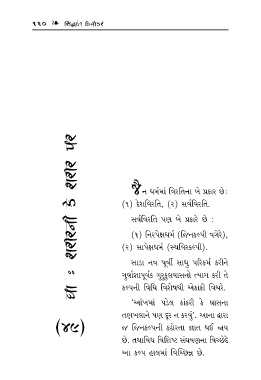 ૧૨૦ ❧ સિદ્ધાંત દિવાકર
ઘી : શરીરની કે શરીર પર
(૪૯)
જૈન ધર્મમાં વિરતિના બે પ્રકાર છે :
(૧) દેશવિરતિ, (૨) સર્વવિરતિ.
સર્વવિરતિ પણ બે પ્રકારે છે :
(૧) નિરપેક્ષધર્મ (જિનકલ્પી વગેરે),
(૨) સાપેક્ષધર્મ (સ્થવિરકલ્પી).
સાડા નવ પૂર્વી સાધુ પરિકર્મ કરીને
ગુર્વાજ્ઞાપૂર્વક ગુરુકુલવાસનો ત્યાગ કરી તે
કલ્પની વિધિ વિશેષથી એકાકી વિચરે.
'આંખમાં પડેલ કાંકરી કે ઘાસના
તણખલાને પણ દૂર ન કરવું'. આના દ્વારા
જ જિનકલ્પની કઠોરતા જ્ઞાત થઈ જાય
છે. તથાવિધ વિશિષ્ટ સંઘયણના વિચ્છેદે
આ કલ્પ હાલમાં વિચ્છિન્ન છે.